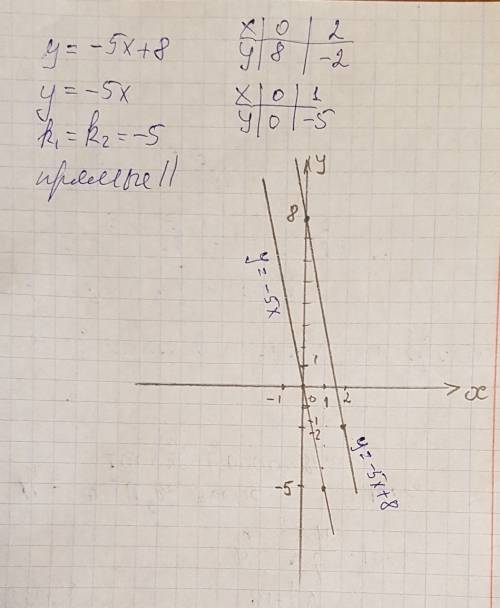 y = -5x+8
x | 0 | 2
y | 8 | -2
y = -5x
x | 0 | 1
y | 0 | -5
k₁ = k₂ = -5
прямые ||
y
8
y = -5x
1
-1 0 1 2 x
-1
-2
y = -5x+8
-5